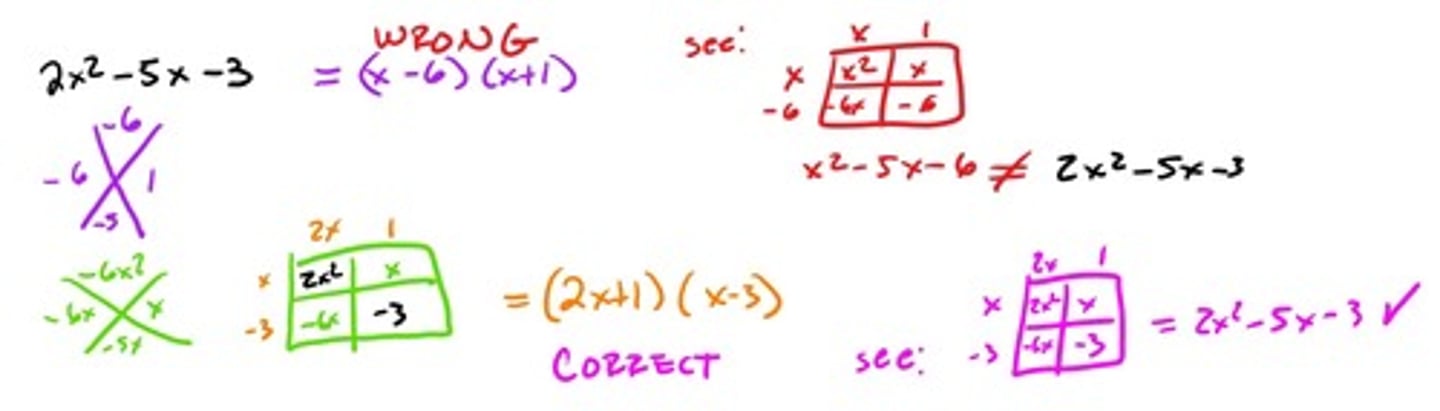 WRONG
2x² - 5x - 3 = (x - 6)(x+1)
see:
x 1
x x² x
-6 -6x -6
x² - 5x - 6 ≠ 2x² - 5x - 3
-6
-6 1
-5
-6x²
-6x x
-5x
2x 1
x 2x² x
-3 -6x -3
= (2x+1)(x-3)
CORRECT
see:
2x 1
x 2x² x
-3 -6x -3
= 2x² - 5x - 3 ✓